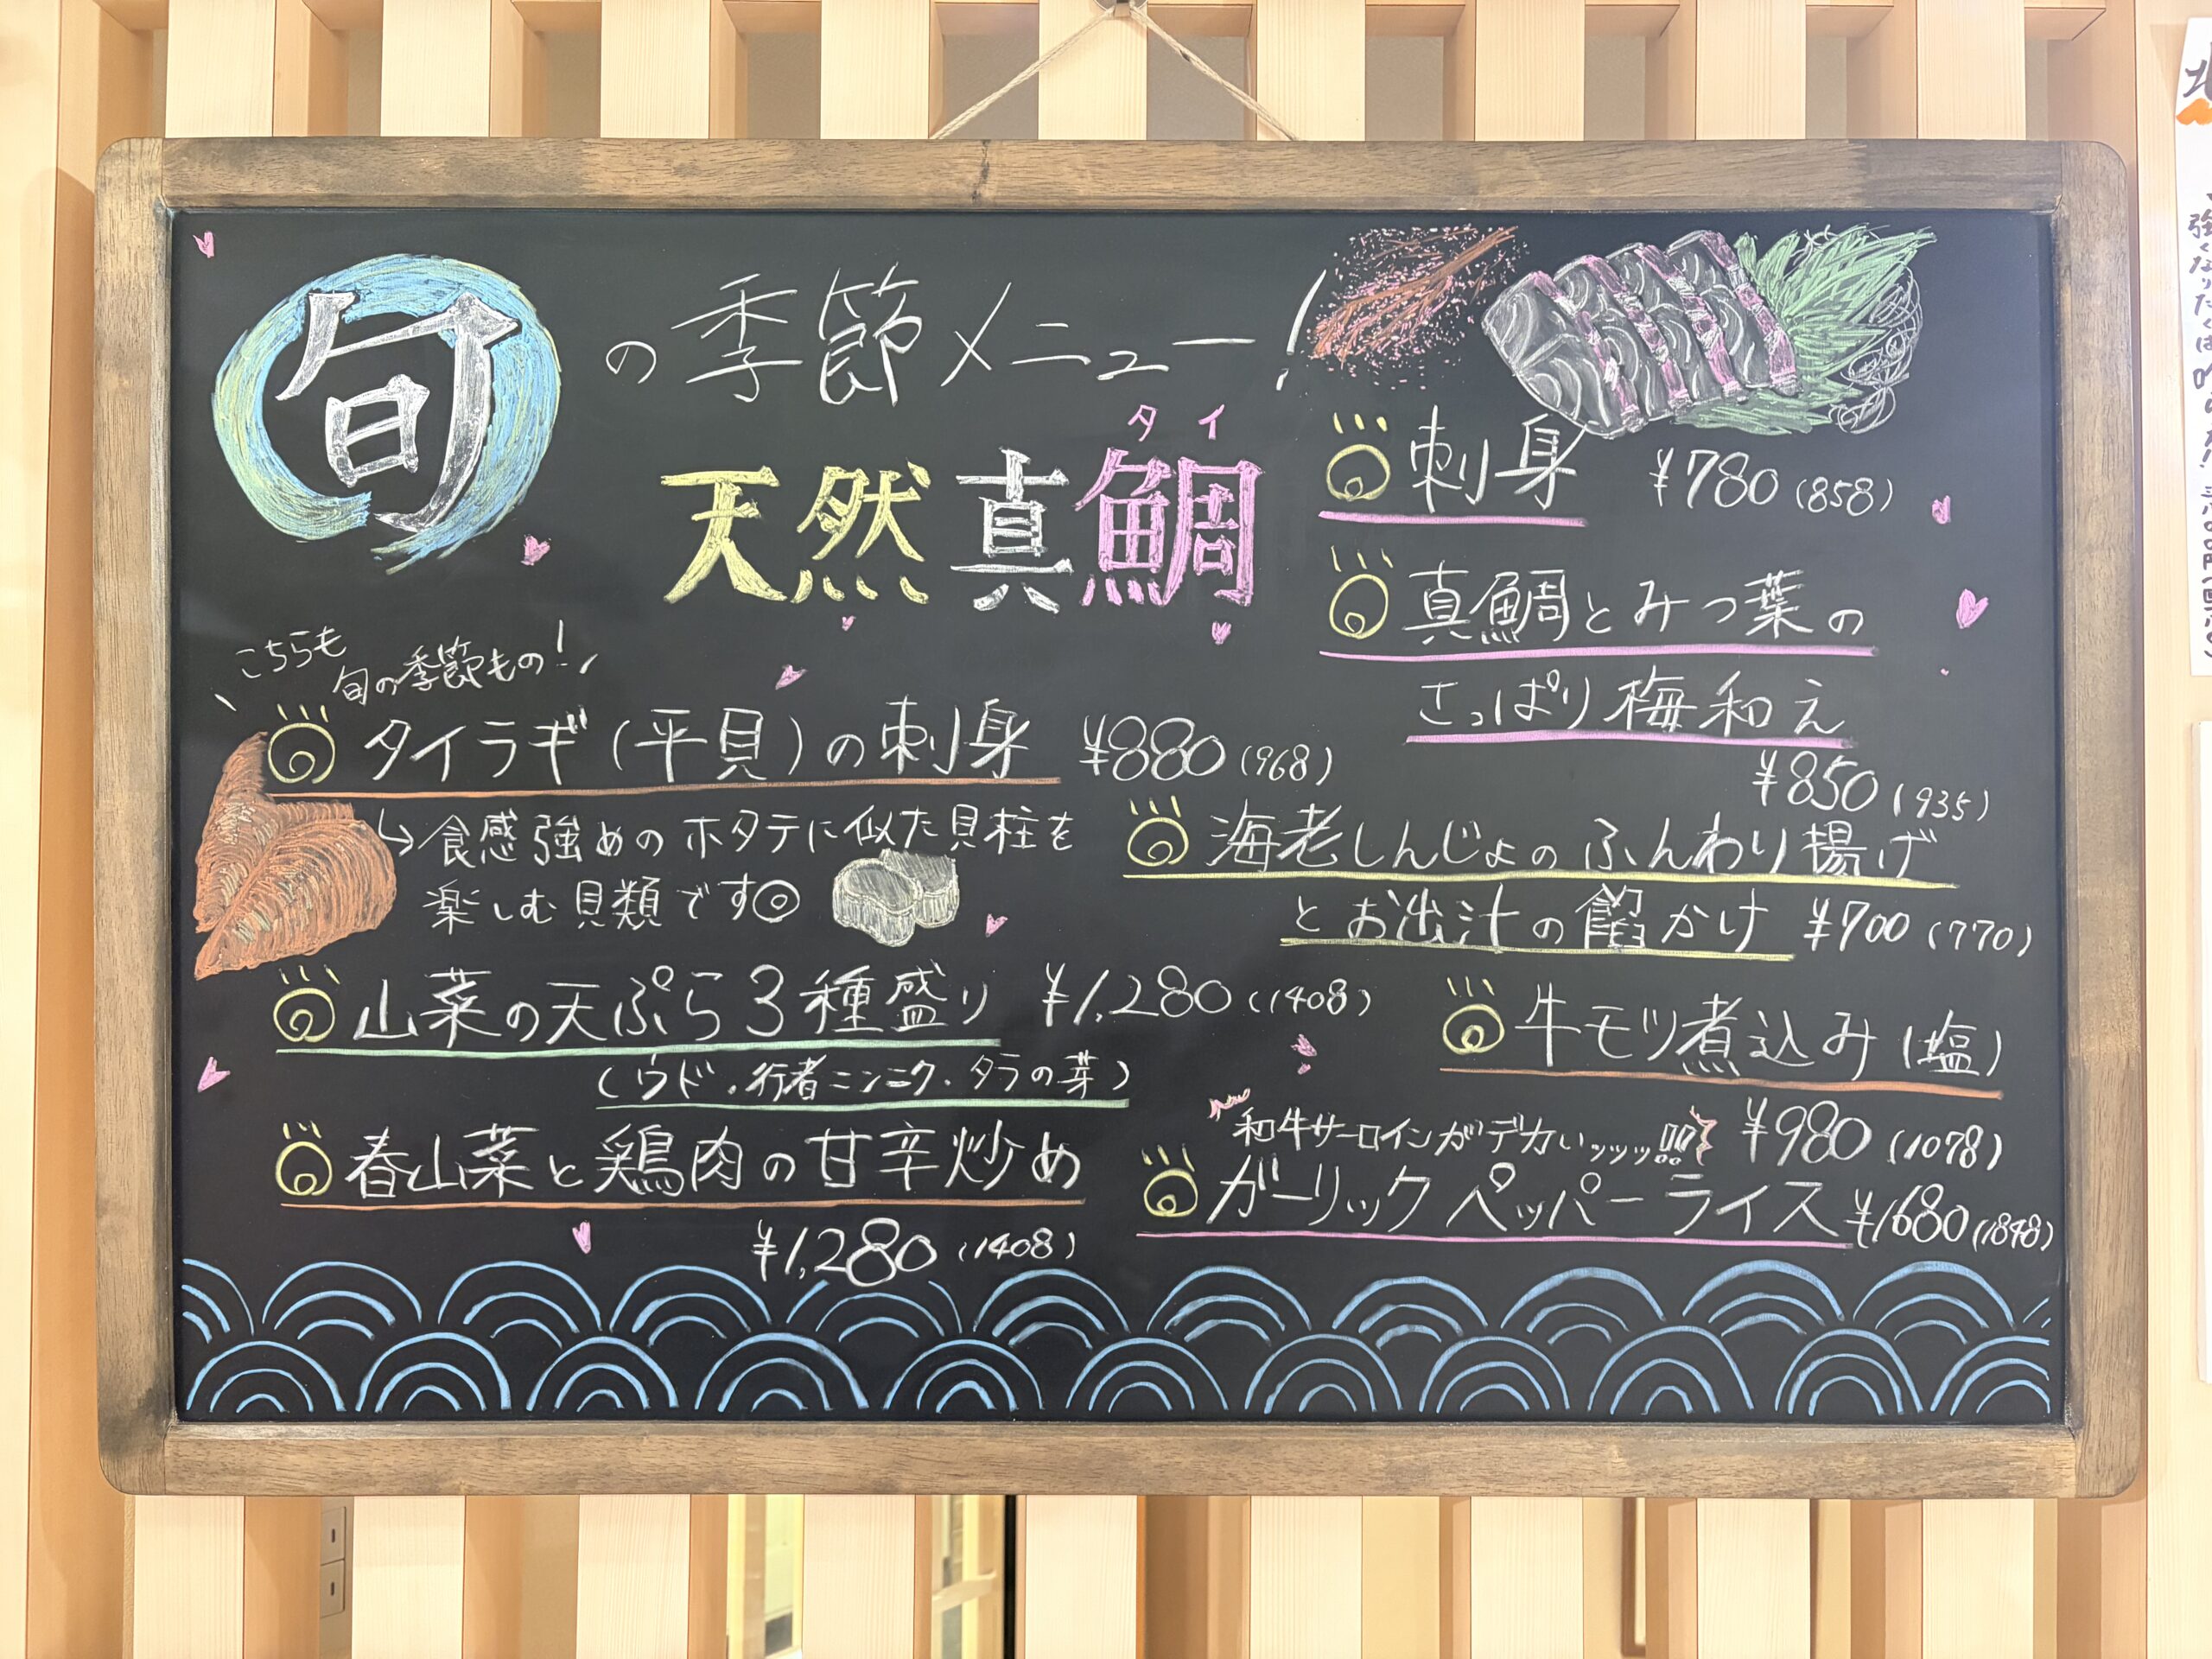 旬の季節メニュー!
タイ
天然真鯛
刺身 ¥780(858)
真鯛とみつ葉の
さっぱり梅和え
¥850(935)
こちらも
旬の季節もの!
タイラギ(平貝)の刺身 ¥880(968)
↳食感強めのホタテに似た貝柱を
楽しむ貝類です◎
山菜の天ぷら3種盛り ¥1,280(1408)
(ウド・行者ニンニク・タラの芽)
春山菜と鶏肉の甘辛炒め
¥1,280(1408)
海老しんじょのふんわり揚げ
とお出汁の餡かけ ¥700(770)
牛モツ煮込み(塩)
¥980(1078)
和牛サーロインがデカいッッッ!!!
ガーリックペッパーライス ¥1680(1848)